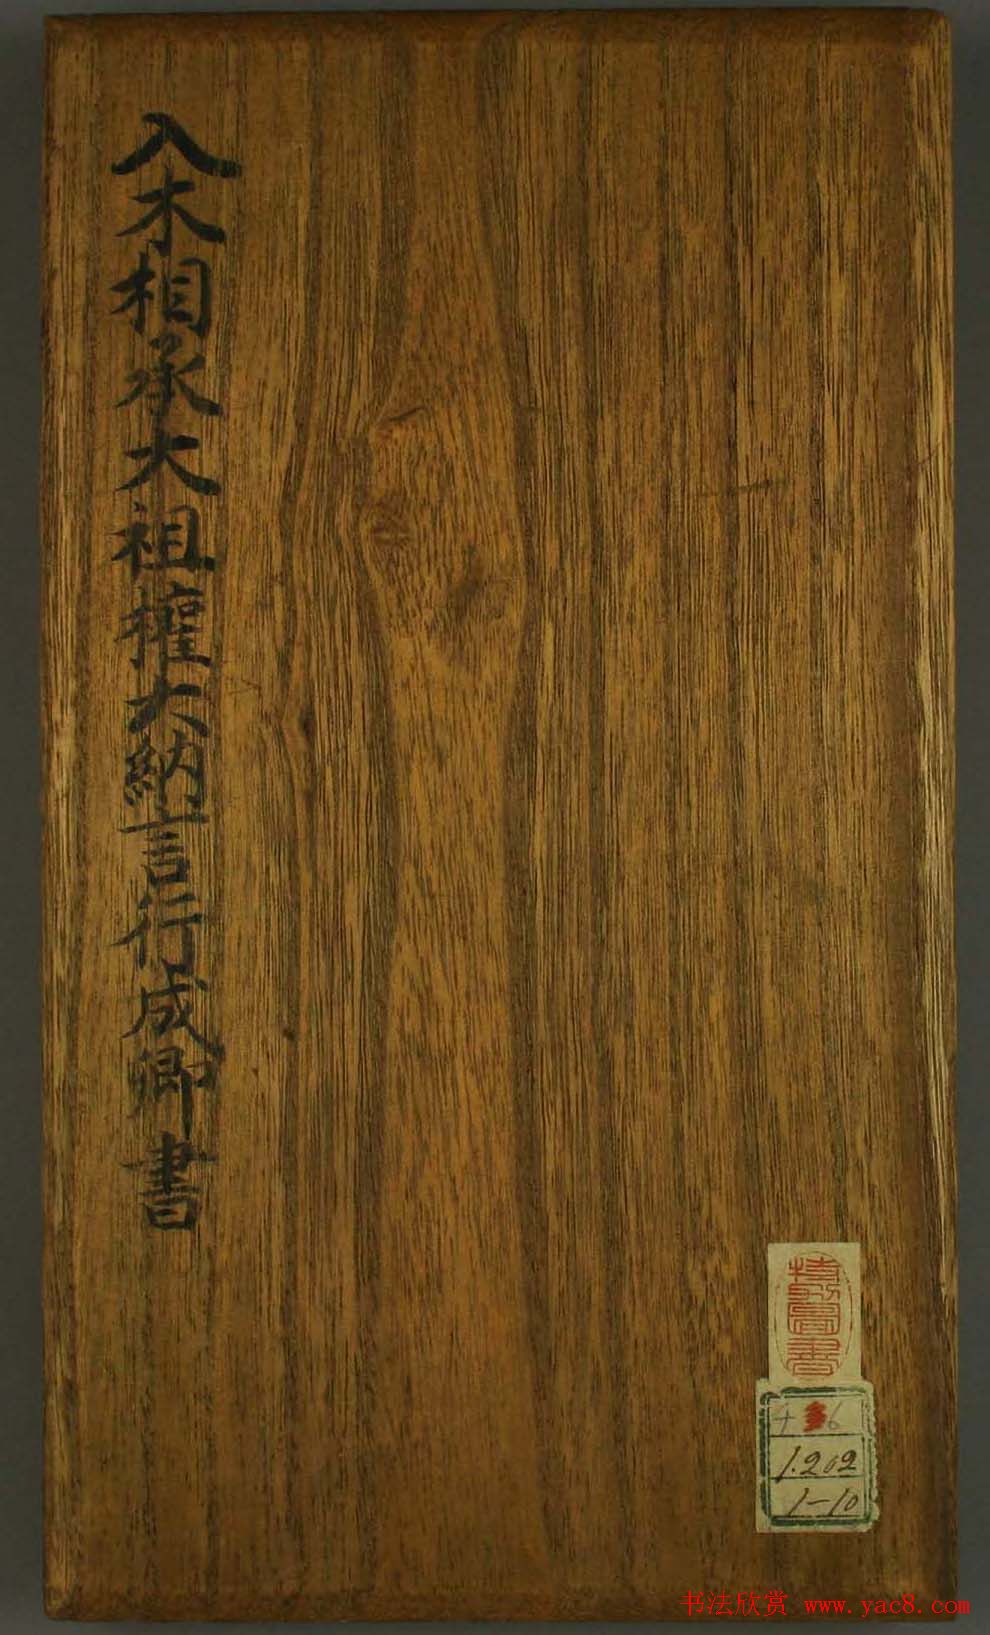 入木相承大祖権大納言行成卿書
特別
圖書
4 6
1.202
1-10
书法欣赏 www.yac8.com